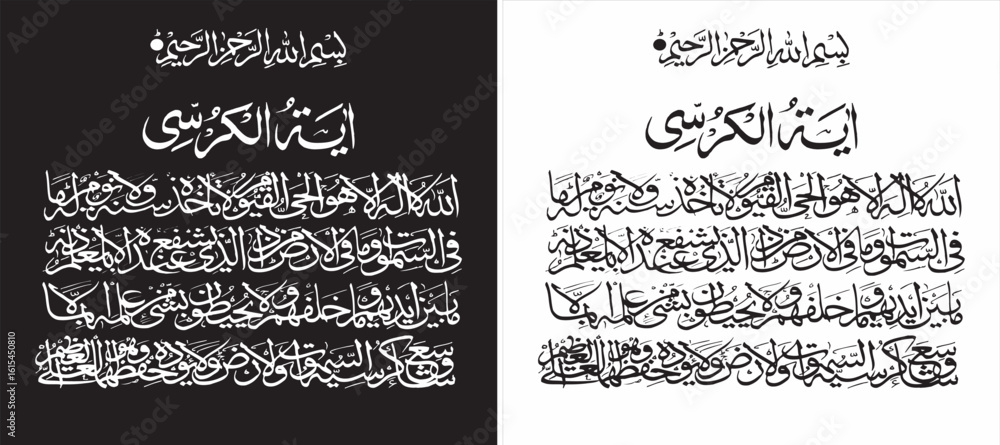 بسم الله الرحمن الرحيم
اية الكرسى
الله لا اله الا هو الحى القيوم لا تاخذه سنة ولا نوم له ما
فى السموت وما فى الارض من ذا الذى يشفع عنده الا باذنه يعلم
ما بين ايديهم وما خلفهم ولا يحيطون بشىء من علمه الا بما
وسع كرسيه السموت والارض ولا يوده حفظهما وهو العلى العظيم
بسم الله الرحمن الرحيم
اية الكرسى
الله لا اله الا هو الحى القيوم لا تاخذه سنة ولا نوم له ما
فى السموت وما فى الارض من ذا الذى يشفع عنده الا باذنه يعلم
ما بين ايديهم وما خلفهم ولا يحيطون بشىء من علمه الا بما
وسع كرسيه السموت والارض ولا يوده حفظهما وهو العلى العظيم
Adobe Stock | #1615450810